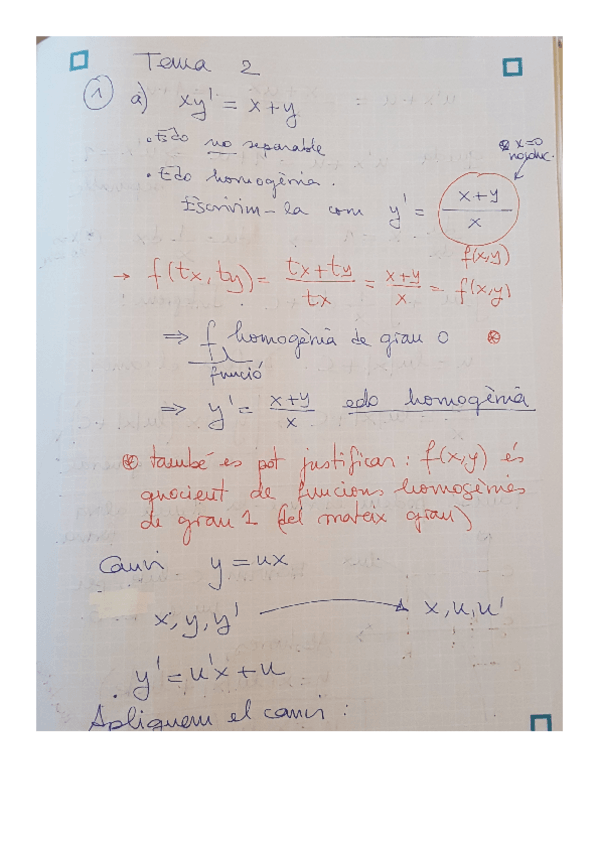 Tema 2
1 a) xy' = x+y
• Edo no separable
⊛ x=0
• Edo homogènia.
Escrivim-la com y' = x+y / x
f(x,y)
→ f(tx,ty) = tx+ty / tx = x+y / x = f(x,y)
⇒ f homogènia de grau 0 ⊛
funció
⇒ y' = x+y / x edo homogènia
⊛ també es pot justificar: f(x,y) és
quocient de funcions homogènies
de grau 1 (del mateix grau)
Canvi y = ux
x, y, y' → x, u, u'
y' = u'x + u
Apliquem el canvi: